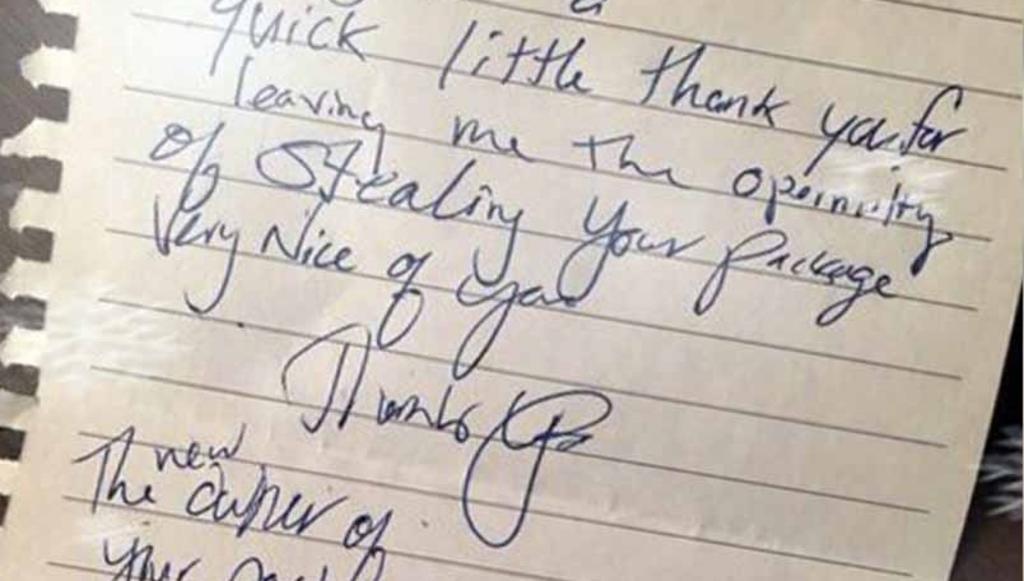 a
quick little thank you for
leaving me the
of Stealing Your package
Very Nice of you
Thanks
new
The owner of
your